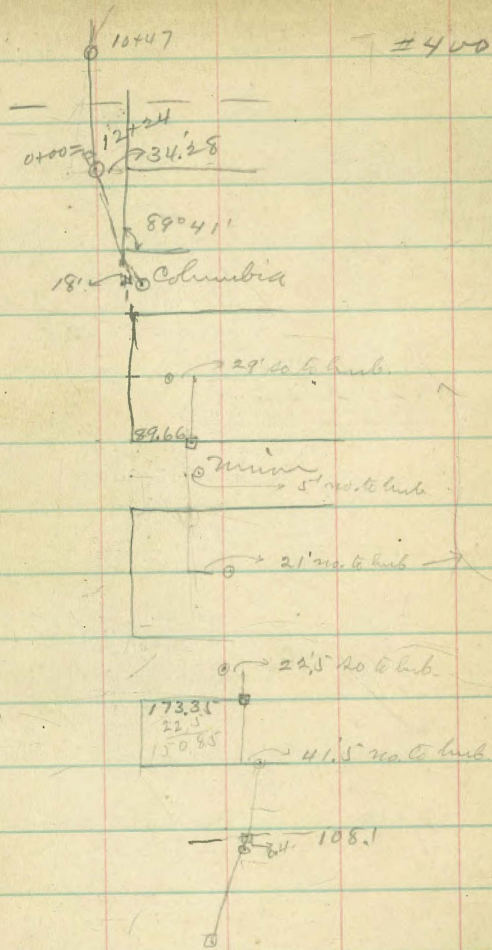 10+47
#400
12+24
0+00=
34.28
89°41'
18'
Columbia
29' so to hub
89.66
5' no. to hub
21' no. to hub
22.5 so to hub
173.35
22.5
150.85
41.5 no. to hub
108.1
8.4